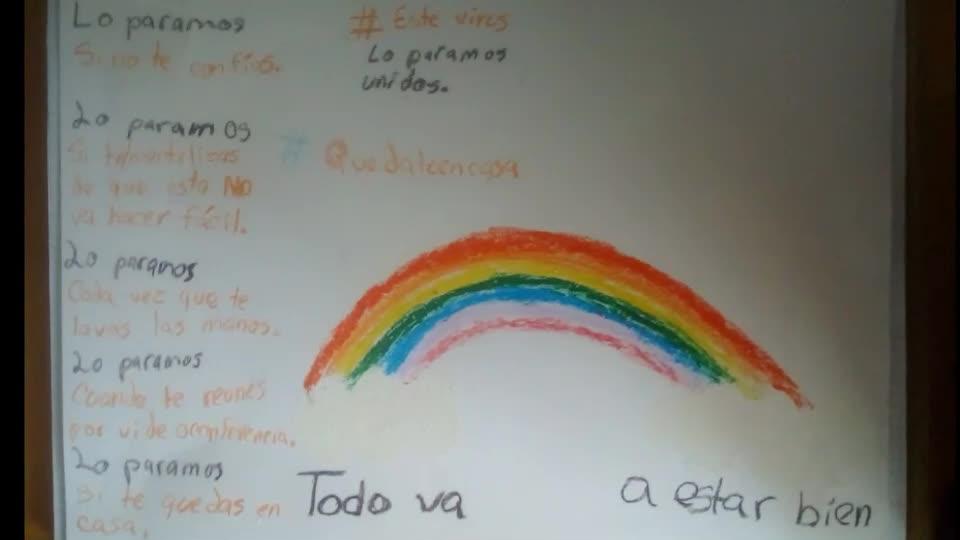 Lo paramos
Si no te confías.
Lo paramos
Si
de que esto NO
va hacer fácil.
Lo paramos
Cada vez que te
lavas las manos.
Lo paramos
Cuando te reunes
por vide
Lo paramos
si te quedas en
casa.
# Este virus
Lo paramos
unidos.
# Quedateencasa
Todo va a estar bien